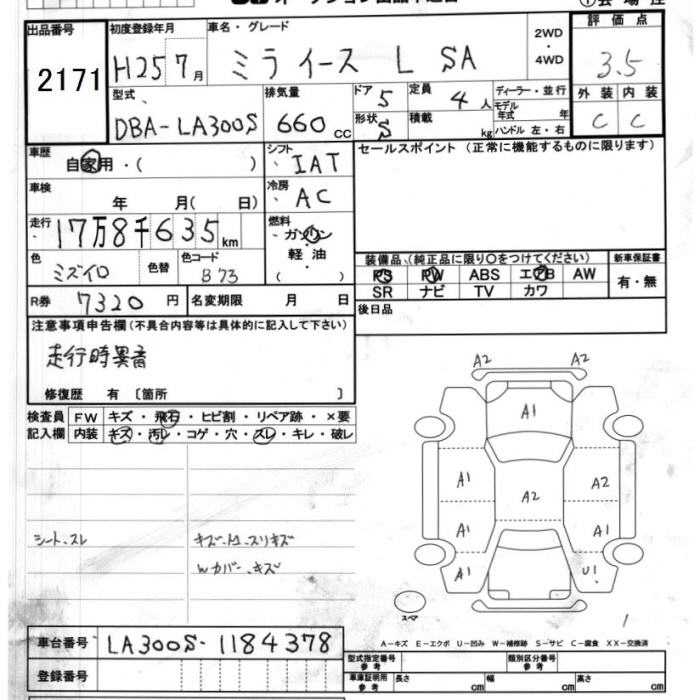 出品番号
2171
初度登録年月
H25 7月
車名・グレード
ミライース L SA
2WD
・
4WD
評価点
3.5
型式
DBA-LA300S
排気量
660 cc
ドア
5
形状
S
定員
4人
積載
kg
ディーラー・並行
モデル年式 年
ハンドル 左・右
外装 内装
C C
車歴
自家用・( )
シフト
IAT
セールスポイント (正常に機能するものに限ります)
車検
年 月( 日)
冷房
AC
走行
17万8千635km
燃料
ガソリン
・
軽油
・
( )
色
ミズイロ
色替
色コード
B73
装備品、(純正品に限り○をつけてください)
PS PW ABS エアB AW
SR ナビ TV カワ
新車保証書
有・無
R券
7320円
名変期限 月 日
後日品
注意事項申告欄(不具合内容等は具体的に記入して下さい)
走行時異音
修復歴 有 〔箇所 〕
検査員記入欄
FW キズ・飛石・ヒビ割・リペア跡・×要
内装 キズ・汚レ・コゲ・穴・スレ・キレ・破レ
シート、スレ
キズ・A1、スリキズ
Wカバー、キズ
A2 A2
A1
A1 A2 A2
A1 A1
A1 U1
スペア
A-キズ E-エクボ U-凹み W-補修跡 S-サビ C-腐食 XX-交換済
車台番号
LA300S-1184378
登録番号
型式指定番号参考
類別区分番号参考
車庫証明用参考
長さ cm 幅 cm 高さ cm